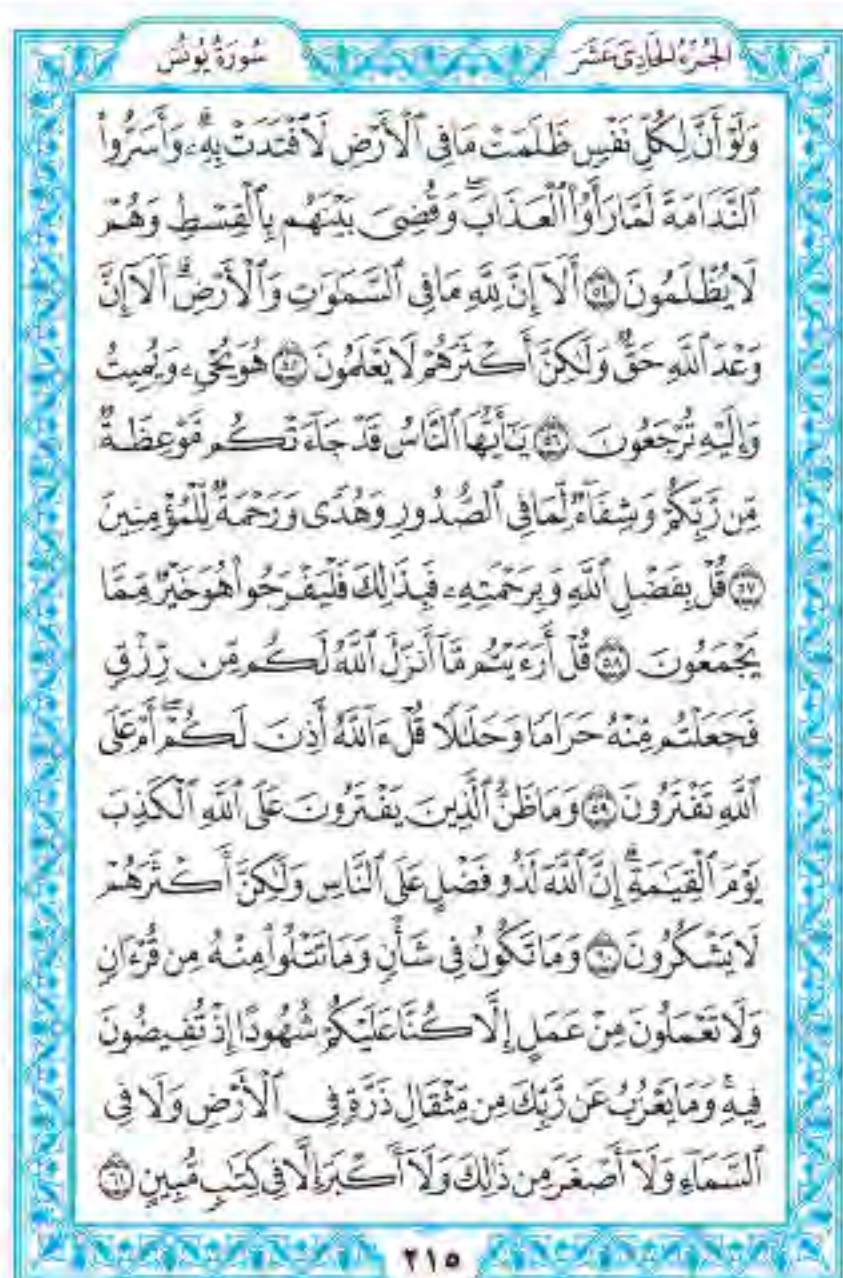 الجُزْءُ الحَادِي عَشَرَ
سُورَةُ يُونُسَ
وَلَوْ أَنَّ لِكُلِّ نَفْسٍ ظَلَمَتْ مَا فِي ٱلْأَرْضِ لَٱفْتَدَتْ بِهِۦۗ وَأَسَرُّواْ
ٱلنَّدَامَةَ لَمَّا رَأَوُاْ ٱلْعَذَابَۖ وَقُضِىَ بَيْنَهُم بِٱلْقِسْطِ وَهُمْ
لَا يُظْلَمُونَ ٥٤ أَلَآ إِنَّ لِلَّهِ مَا فِي ٱلسَّمَٰوَٰتِ وَٱلْأَرْضِۗ أَلَآ إِنَّ
وَعْدَ ٱللَّهِ حَقٌّ وَلَٰكِنَّ أَكْثَرَهُمْ لَا يَعْلَمُونَ ٥٥ هُوَ يُحْيِۦ وَيُمِيتُ
وَإِلَيْهِ تُرْجَعُونَ ٥٦ يَٰٓأَيُّهَا ٱلنَّاسُ قَدْ جَآءَتْكُم مَّوْعِظَةٌ
مِّن رَّبِّكُمْ وَشِفَآءٌ لِّمَا فِي ٱلصُّدُورِ وَهُدًى وَرَحْمَةٌ لِّلْمُؤْمِنِينَ
٥٧ قُلْ بِفَضْلِ ٱللَّهِ وَبِرَحْمَتِهِۦ فَبِذَٰلِكَ فَلْيَفْرَحُواْ هُوَ خَيْرٌ مِّمَّا
يَجْمَعُونَ ٥٨ قُلْ أَرَءَيْتُم مَّآ أَنزَلَ ٱللَّهُ لَكُم مِّن رِّزْقٍ
فَجَعَلْتُم مِّنْهُ حَرَامًا وَحَلَٰلًا قُلْ ءَآللَّهُ أَذِنَ لَكُمْۖ أَمْ عَلَى
ٱللَّهِ تَفْتَرُونَ ٥٩ وَمَا ظَنُّ ٱلَّذِينَ يَفْتَرُونَ عَلَى ٱللَّهِ ٱلْكَذِبَ
يَوْمَ ٱلْقِيَٰمَةِۗ إِنَّ ٱللَّهَ لَذُو فَضْلٍ عَلَى ٱلنَّاسِ وَلَٰكِنَّ أَكْثَرَهُمْ
لَا يَشْكُرُونَ ٦٠ وَمَا تَكُونُ فِي شَأْنٍ وَمَا تَتْلُواْ مِنْهُ مِن قُرْءَانٍ
وَلَا تَعْمَلُونَ مِنْ عَمَلٍ إِلَّا كُنَّا عَلَيْكُمْ شُهُودًا إِذْ تُفِيضُونَ
فِيهِۚ وَمَا يَعْزُبُ عَن رَّبِّكَ مِن مِّثْقَالِ ذَرَّةٍ فِي ٱلْأَرْضِ وَلَا فِي
ٱلسَّمَآءِ وَلَآ أَصْغَرَ مِن ذَٰلِكَ وَلَآ أَكْبَرَ إِلَّا فِي كِتَٰبٍ مُّبِينٍ ٦١
٢١٥